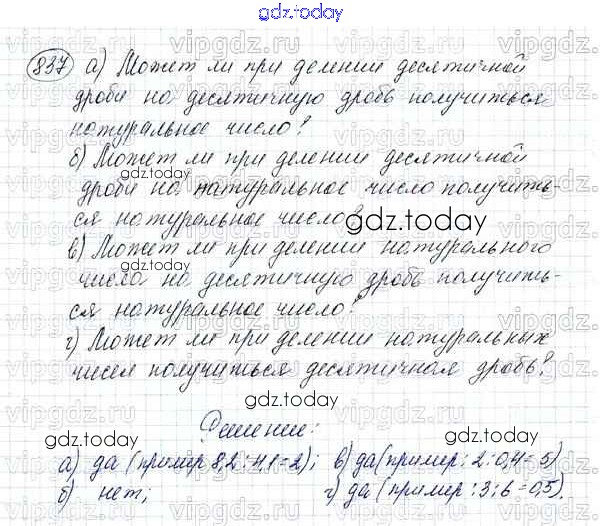 gdz.today
837 а) Может ли при делении десятичной
дроби на десятичную дробь получиться
натуральное число?
б) Может ли при делении десятичной
дроби на натуральное число получить-
ся натуральное число?
в) Может ли при делении натурального
числа на десятичную дробь получить-
ся натуральное число?
г) Может ли при делении натуральных
чисел получиться десятичная дробь?
Решение:
а) да (пример 8,2 : 4,1 = 2); в) да (пример: 2 : 0,4 = 5)
б) нет; г) да (пример: 3 : 6 = 0,5).
gdz.today
gdz.today
gdz.today
gdz.today
gdz.today
gdz.today